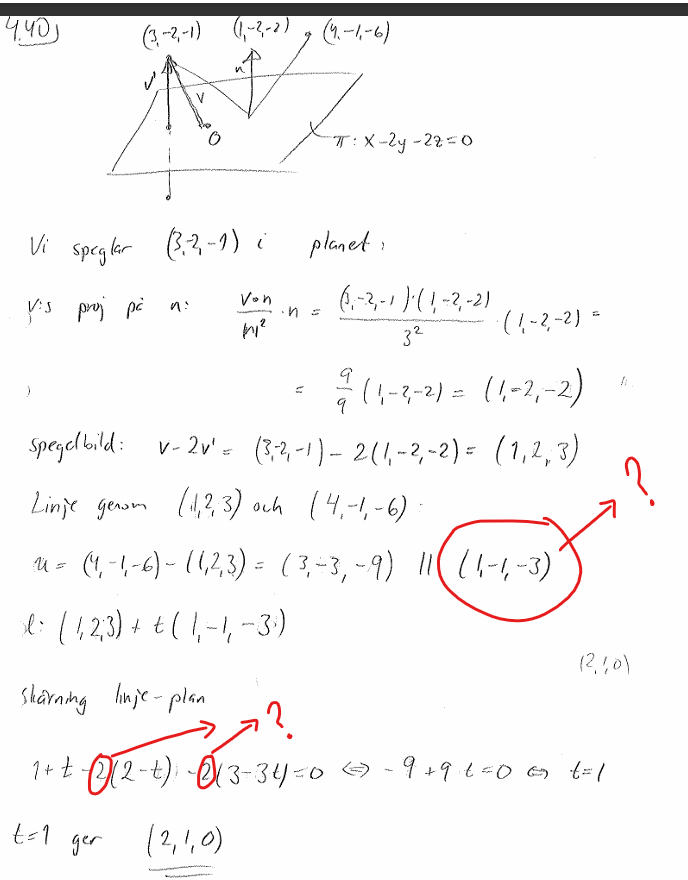 4.40)
(3,-2,-1) (1,-2,-2) (4,-1,-6)
v' v n
O
π: x-2y-2z=0
Vi speglar (3,-2,-1) i planet,
V:s proj på n: v•n/|n|² · n = (3,-2,-1)·(1,-2,-2)/3² · (1,-2,-2) =
= 9/9 (1,-2,-2) = (1,-2,-2)
spegelbild: v-2v' = (3,-2,-1) - 2(1,-2,-2) = (1,2,3)
?
Linje genom (1,2,3) och (4,-1,-6):
u = (4,-1,-6) - (1,2,3) = (3,-3,-9) // (1,-1,-3)
l: (1,2,3) + t(1,-1,-3)
(2,1,0)
Skärning linje-plan
?
1+t-2(2-t)-2(3-3t)=0 ⇔ -9+9t=0 ⇔ t=1
t=1 ger (2,1,0)